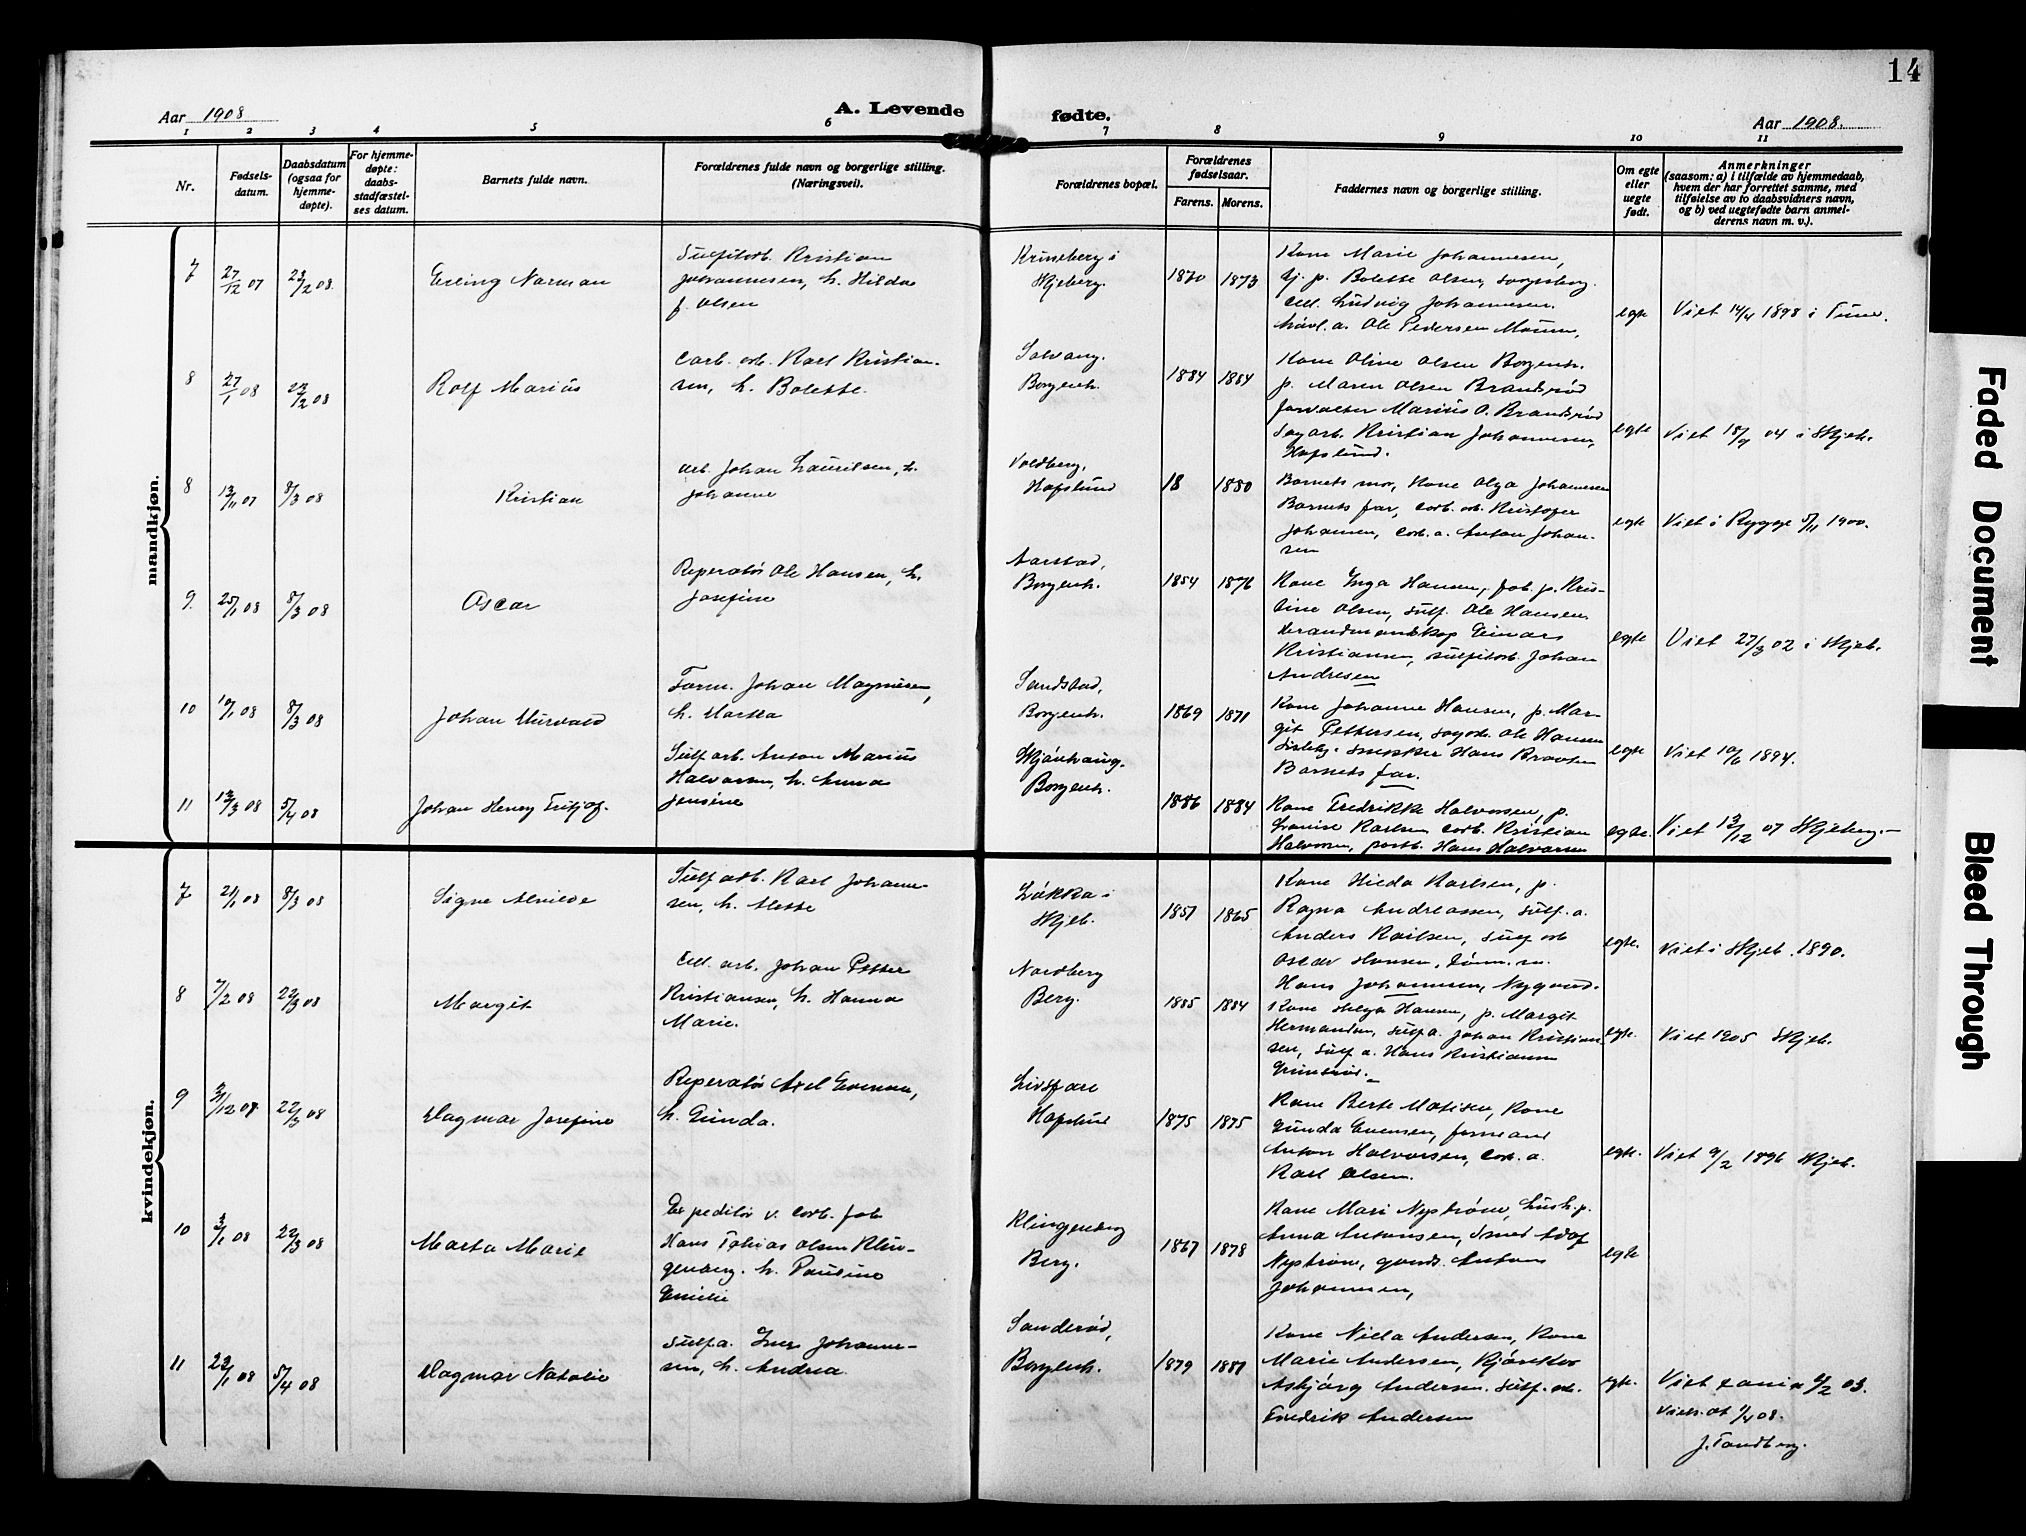 14
Aar 1908
A. Levende
fødte.
Aar 1908.
1 2 3 4 5 6 7 8 9 10 11
Nr.
Fødsels-
datum.
Daabsdatum
(ogsaa for
hjemme-
døpte).
For hjemme-
døpte:
daabs-
stadfæstel-
ses datum.
Barnets fulde navn.
Forældrenes fulde navn og borgerlige stilling.
(Næringsvei).
Forældrenes bopæl.
Forældrenes
fødselsaar.
Farens. Morens.
Faddernes navn og borgerlige stilling.
Om egte
eller
uegte
født.
Anmerkninger
(saasom: a) i tilfælde av hjemmedaab,
hvem der har forrettet samme, med
tilføielse av to daabsvidners navn,
og b) ved uegtefødte barn anmel-
derens navn m. v.).
mandkjøn.
7
27/12 07
23/2 08
Erling Norman
Sulfitarb. Kristian
Johannessen, h. Hilda
f. Olsen
Kruneberg i
Skjeberg.
1870
1873
Kone Marie Johannesen,
tj. p. Bolette Olsen, Sarpsborg.
Cell. Ludvig Johannesen.
Ole Pedersen
egte
Viet 14/4 1898 i Tune.
8
27/1 08
23/2 08
Rolf Marius
Carb. arb. Karl Kristian-
sen, h. Bolette.
Solvang.
Borgenh.
1884
1884
Kone Oline Olsen Borgenh.
p. Maren Olsen Brandsrød
forvalter Marius O. Brandsrød
Sagarb. Kristian Johannesen,
Hafslund.
egte
Viet 18/9 04 i Skjeb.
8
13/11 07
8/3 08
Kristian
arb. Johan Lauritsen, h.
Johanne
Voldberg,
Hafslund
18
1880
Barnets mor, Kone Olga Johannesen
Barnets far, carb. arb. Kristofer
Johansen, carb. a. Anton Johan-
sen
egte
Viet i Rygge 5/11 1900.
9.
25/1 08
8/3 08
Oscar
Reperatør Ole Hansen, h.
Josefine
Aarstad,
Borgenh.
1854
1876
Kone Inga Hansen, fab. p. Kris-
tine Olsen, sulf. Ole Hansen
brandmandskap Einars
Kristiansen, sulfitarb. Johan
Andresen
egte
Viet 27/3 02 i Skjeb.
10
19/1 08
8/3 08
Johan Thorvald
Form. Johan Magnusen,
h. Marta
Sandstad,
Borgenh.
1869
1871
Kone Johanne Hansen, p. Mar-
git Pettersen, sagarb. Ole Hansen
snekker Hans Braaten
Barnets far.
egte
Viet 10/6 1894.
11
13/3 08
5/4 08
Johan Henry Fritjof.
Sulf arb. Anton Marius
Halvorsen, h. Anna
Jensine
Skjønhaug.
Borgenh.
1886
1884
Kone Fredrikke Halvorsen, p.
Lovise Karlsen carb. Kristian
Halvorsen, postb. Hans Halvorsen
egte.
Viet 13/12 07 Skjeberg.
kvindekjøn.
7
21/1 08
8/3 08
Signe Alvilde
Sulf arb. Karl Johann-
sen, h. Alette
Løkka i
Skjeb.
1857
1865
Kone Hilda Karlsen, p.
Ragna Andreassen, sulf. a.
Anders Karlsen, sulf arb
Oscar Hansen, tømm.m.
Hans Johannesen, Nygaard.
egte.
Viet i Skjeb. 1890.
8
7/2 08
22/3 08
Margit
Cell. arb. Johan Petter
Kristiansen, h. Hanna
Marie.
Nordberg
Berg.
1885
1884
Kone Helga Hansen, p. Margit
Hermansen, sulf a. Johan Kristian-
sen, sulf a. Hans Kristiansen
egte.
Viet 1905 Skjeb.
9
31/12 07
22/3 08
Dagmar Josefine
Reperatør Axel Evensen,
h. Gunda.
Hafslund
1875
1875
Kone Berte Matisen, Kone
Gunda Evensen,
Anton Halvorsen, Carb. a.
Karl Olsen.
egte.
Viet 9/2 1896 Skjeb.
10
3/1 08
22/3 08
Marta Marie
Expeditør v. Carb. fab
Hans Tobias Olsen Klin-
genberg. h. Pauline
Emilie
Klingenberg
Berg.
1867
1878
Kone Mari Nystrøm, hush. p.
Anna Antonsen, Smed Adof
Nystrøm, gaards. Antons
Johannesen,
egte
11
23/1 08
5/4 08
Dagmar Natalie
Sulf a. Iver Johanne-
sen, h. Andrea.
Sanderød,
Borgenh.
1879
1881
Kone Nicla Andersen, Kone
Marie Andersen, Kjøreskar
Asbjørg Andersen. Sulf. arb.
Fredrik Andersen
egte.
Viet 2/2 03.
Vielsat 1/4 08.
J. Tandberg.
Faded Document
Bleed Through